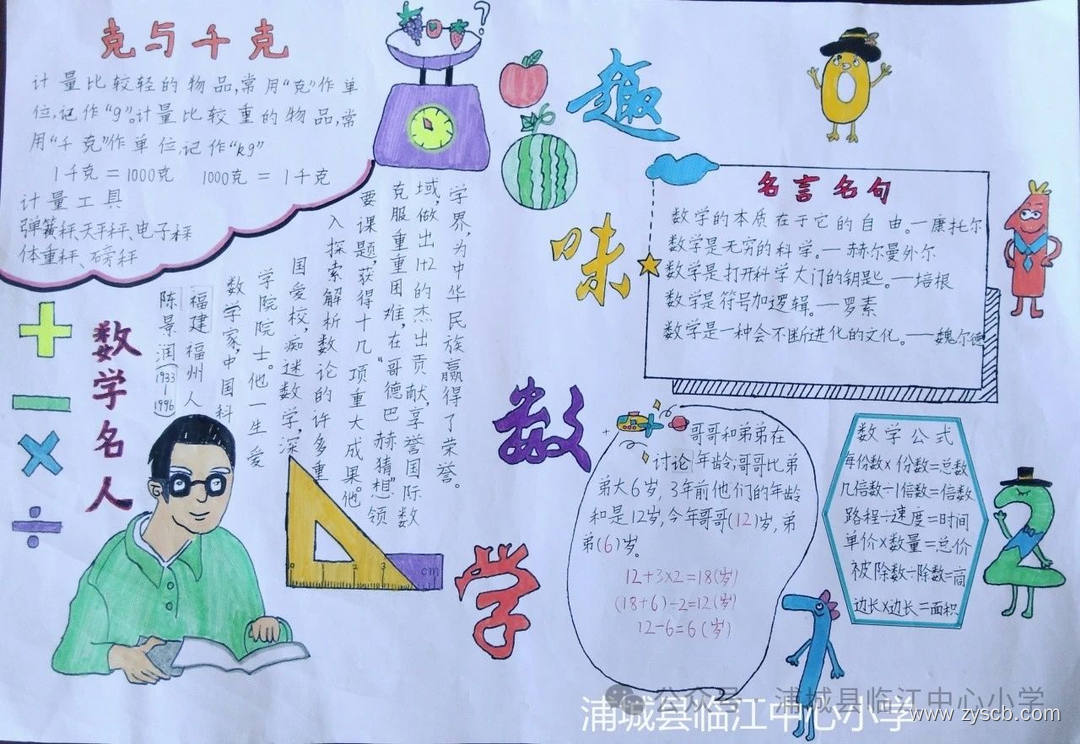 克与千克
计量比较轻的物品,常用"克"作单
位,记作"g"。计量比较重的物品,常
用"千克"作单位,记作"kg"
1千克=1000克 1000克=1千克
计量工具
弹簧秤、天平秤、电子秤
体重秤、磅秤
?
数学名人
陈景润(1933-1996)
福建福州人
数学家,中国科
学院院士。他一生爱
国爱校,痴迷数学,深
入探索解析数论的许多重
要课题,获得十几项重大成果。他
克服重重困难,在"哥德巴赫"猜想"领
域,做出1+2的杰出贡献,享誉国际数
学界,为中华民族赢得了荣誉。
cm
趣味数学
名言名句
数学的本质在于它的自由。—康托尔
数学是无穷的科学。—赫尔曼外尔
数学是打开科学大门的钥匙。—培根
数学是符号加逻辑。—罗素
数学是一种会不断进化的文化。——魏尔德
哥哥和弟弟在
讨论年龄,哥哥比弟
弟大6岁,3年前他们的年龄
和是12岁,今年哥哥(12)岁,弟
弟(6)岁。
12+3×2=18(岁)
(18+6)÷2=12(岁)
12-6=6(岁)
数学公式
每份数×份数=总数
几倍数÷1倍数=倍数
路程÷速度=时间
单价×数量=总价
被除数÷除数=商
边长×边长=面积
公众号·浦城县临江中心小学
浦城县临江中心小学
www.zyscb.com